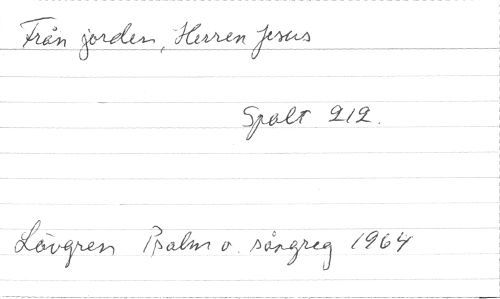 Från jorden, Herren Jesus
Spalt 212.
Lövgren Psalm o. sångreg 1964